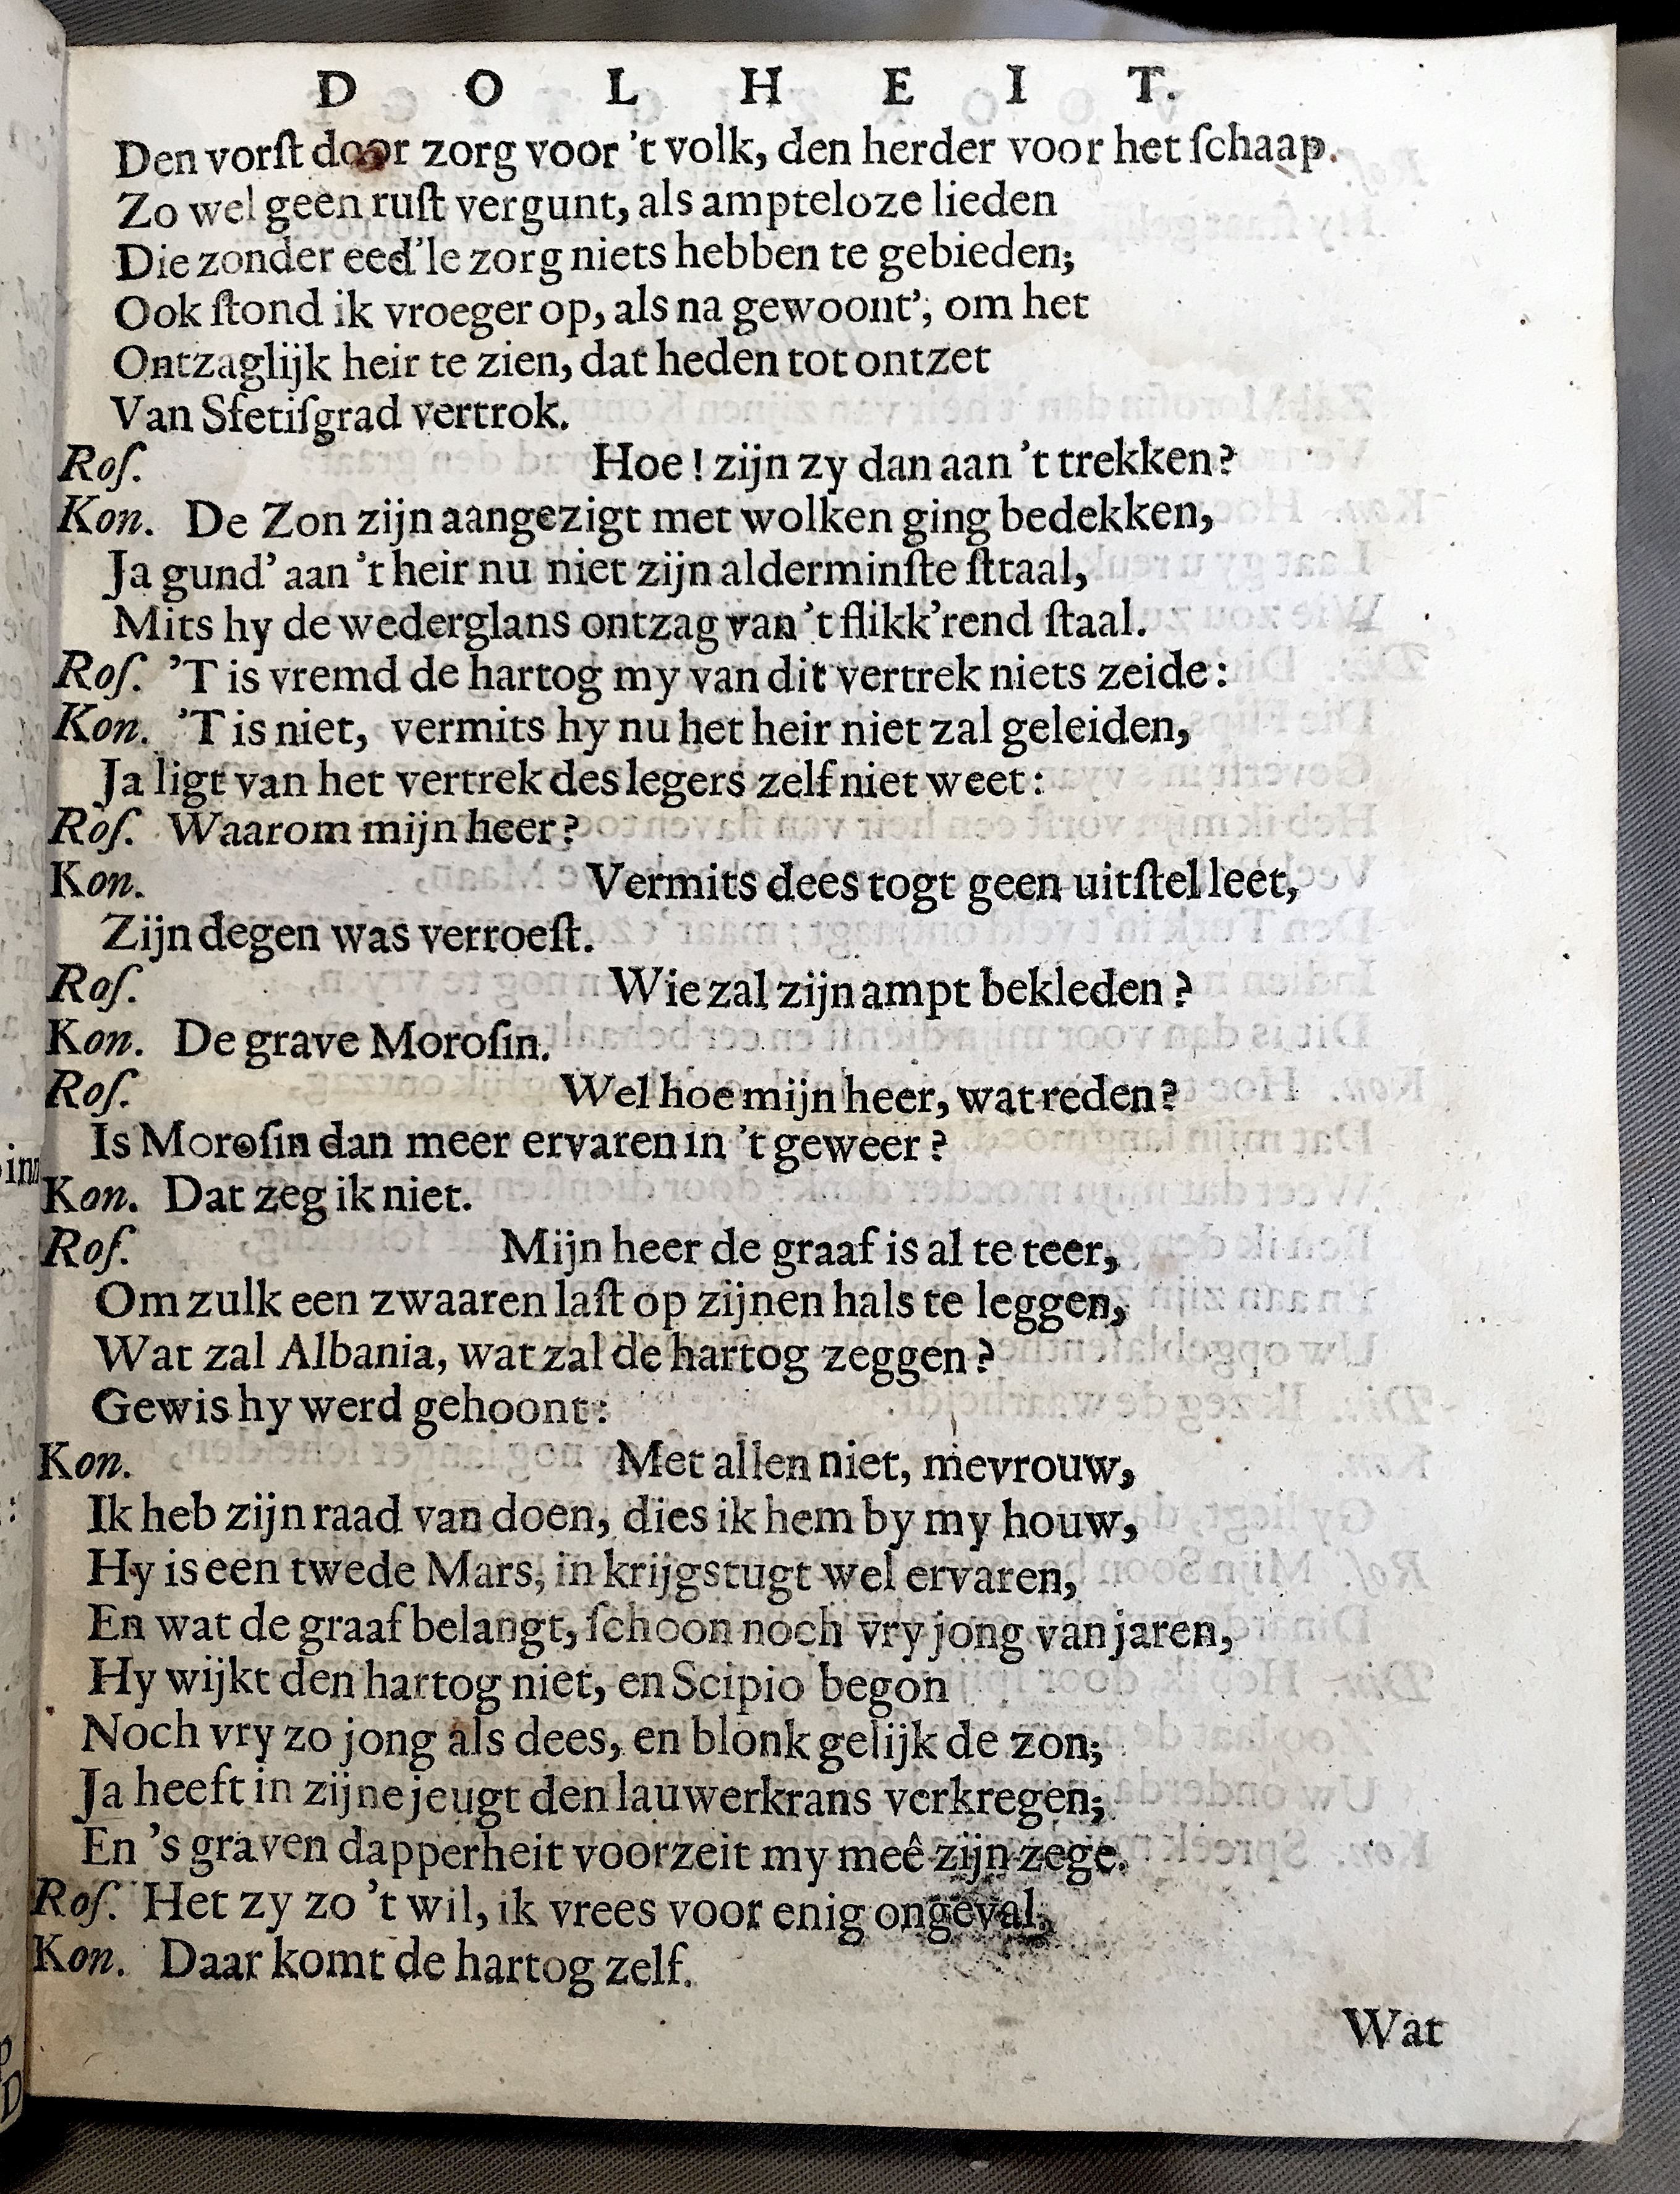 D O L H E I T.
Den vorſt door zorg voor 't volk, den herder voor het ſchaap.
Zo wel geen ruſt vergunt, als ampteloze lieden
Die zonder eed'le zorg niets hebben te gebieden;
Ook ſtond ik vroeger op, als na gewoont'; om het
Ontzaglijk heir te zien, dat heden tot ontzet
Van Sfetiſgrad vertrok.
Roſ. Hoe! zijn zy dan aan 't trekken?
Kon. De Zon zijn aangezigt met wolken ging bedekken,
Ja gund' aan 't heir nu niet zijn alderminſte ſttaal,
Mits hy de wederglans ontzag van 't flikk'rend ſtaal.
Roſ. 'T is vremd de hartog my van dit vertrek niets zeide:
Kon. 'T is niet, vermits hy nu het heir niet zal geleiden,
Ja ligt van het vertrek des legers zelf niet weet:
Roſ. Waarom mijn heer?
Kon. Vermits dees togt geen uitſtel leet,
Zijn degen was verroeſt.
Roſ. Wie zal zijn ampt bekleden?
Kon. De grave Moroſin.
Roſ. Wel hoe mijn heer, wat reden?
Is Moroſin dan meer ervaren in 't geweer?
Kon. Dat zeg ik niet.
Roſ. Mijn heer de graaf is al te teer,
Om zulk een zwaaren laſt op zijnen hals te leggen,
Wat zal Albania, wat zal de hartog zeggen?
Gewis hy werd gehoont:
Kon. Met allen niet, mevrouw,
Ik heb zijn raad van doen, dies ik hem by my houw,
Hy is een twede Mars, in krijgstugt wel ervaren,
En wat de graaf belangt, ſchoon noch vry jong van jaren,
Hy wijkt den hartog niet, en Scipio begon
Noch vry zo jong als dees, en blonk gelijk de zon;
Ja heeft in zijne jeugt den lauwerkrans verkregen;
En 's graven dapperheit voorzeit my meê zijn zege.
Roſ. Het zy zo 't wil, ik vrees voor enig ongeval,
Kon. Daar komt de hartog zelf.
Wat